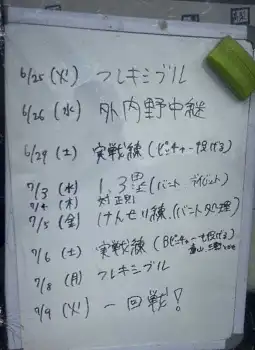 6/25 (火) フレキシブル
6/26 (水) 外内野中継
6/29 (土) 実戦練 (ピッチャー投げる)
7/3 (水) 1,3塁 (バント
7/4 (木) 対正則
7/5 (金) けんせい練 (バント処理)
7/6 (土) 実戦練 (Bピッチャー投げる)
7/8 (月) フレキシブル
9/9 (火) 一回戦!